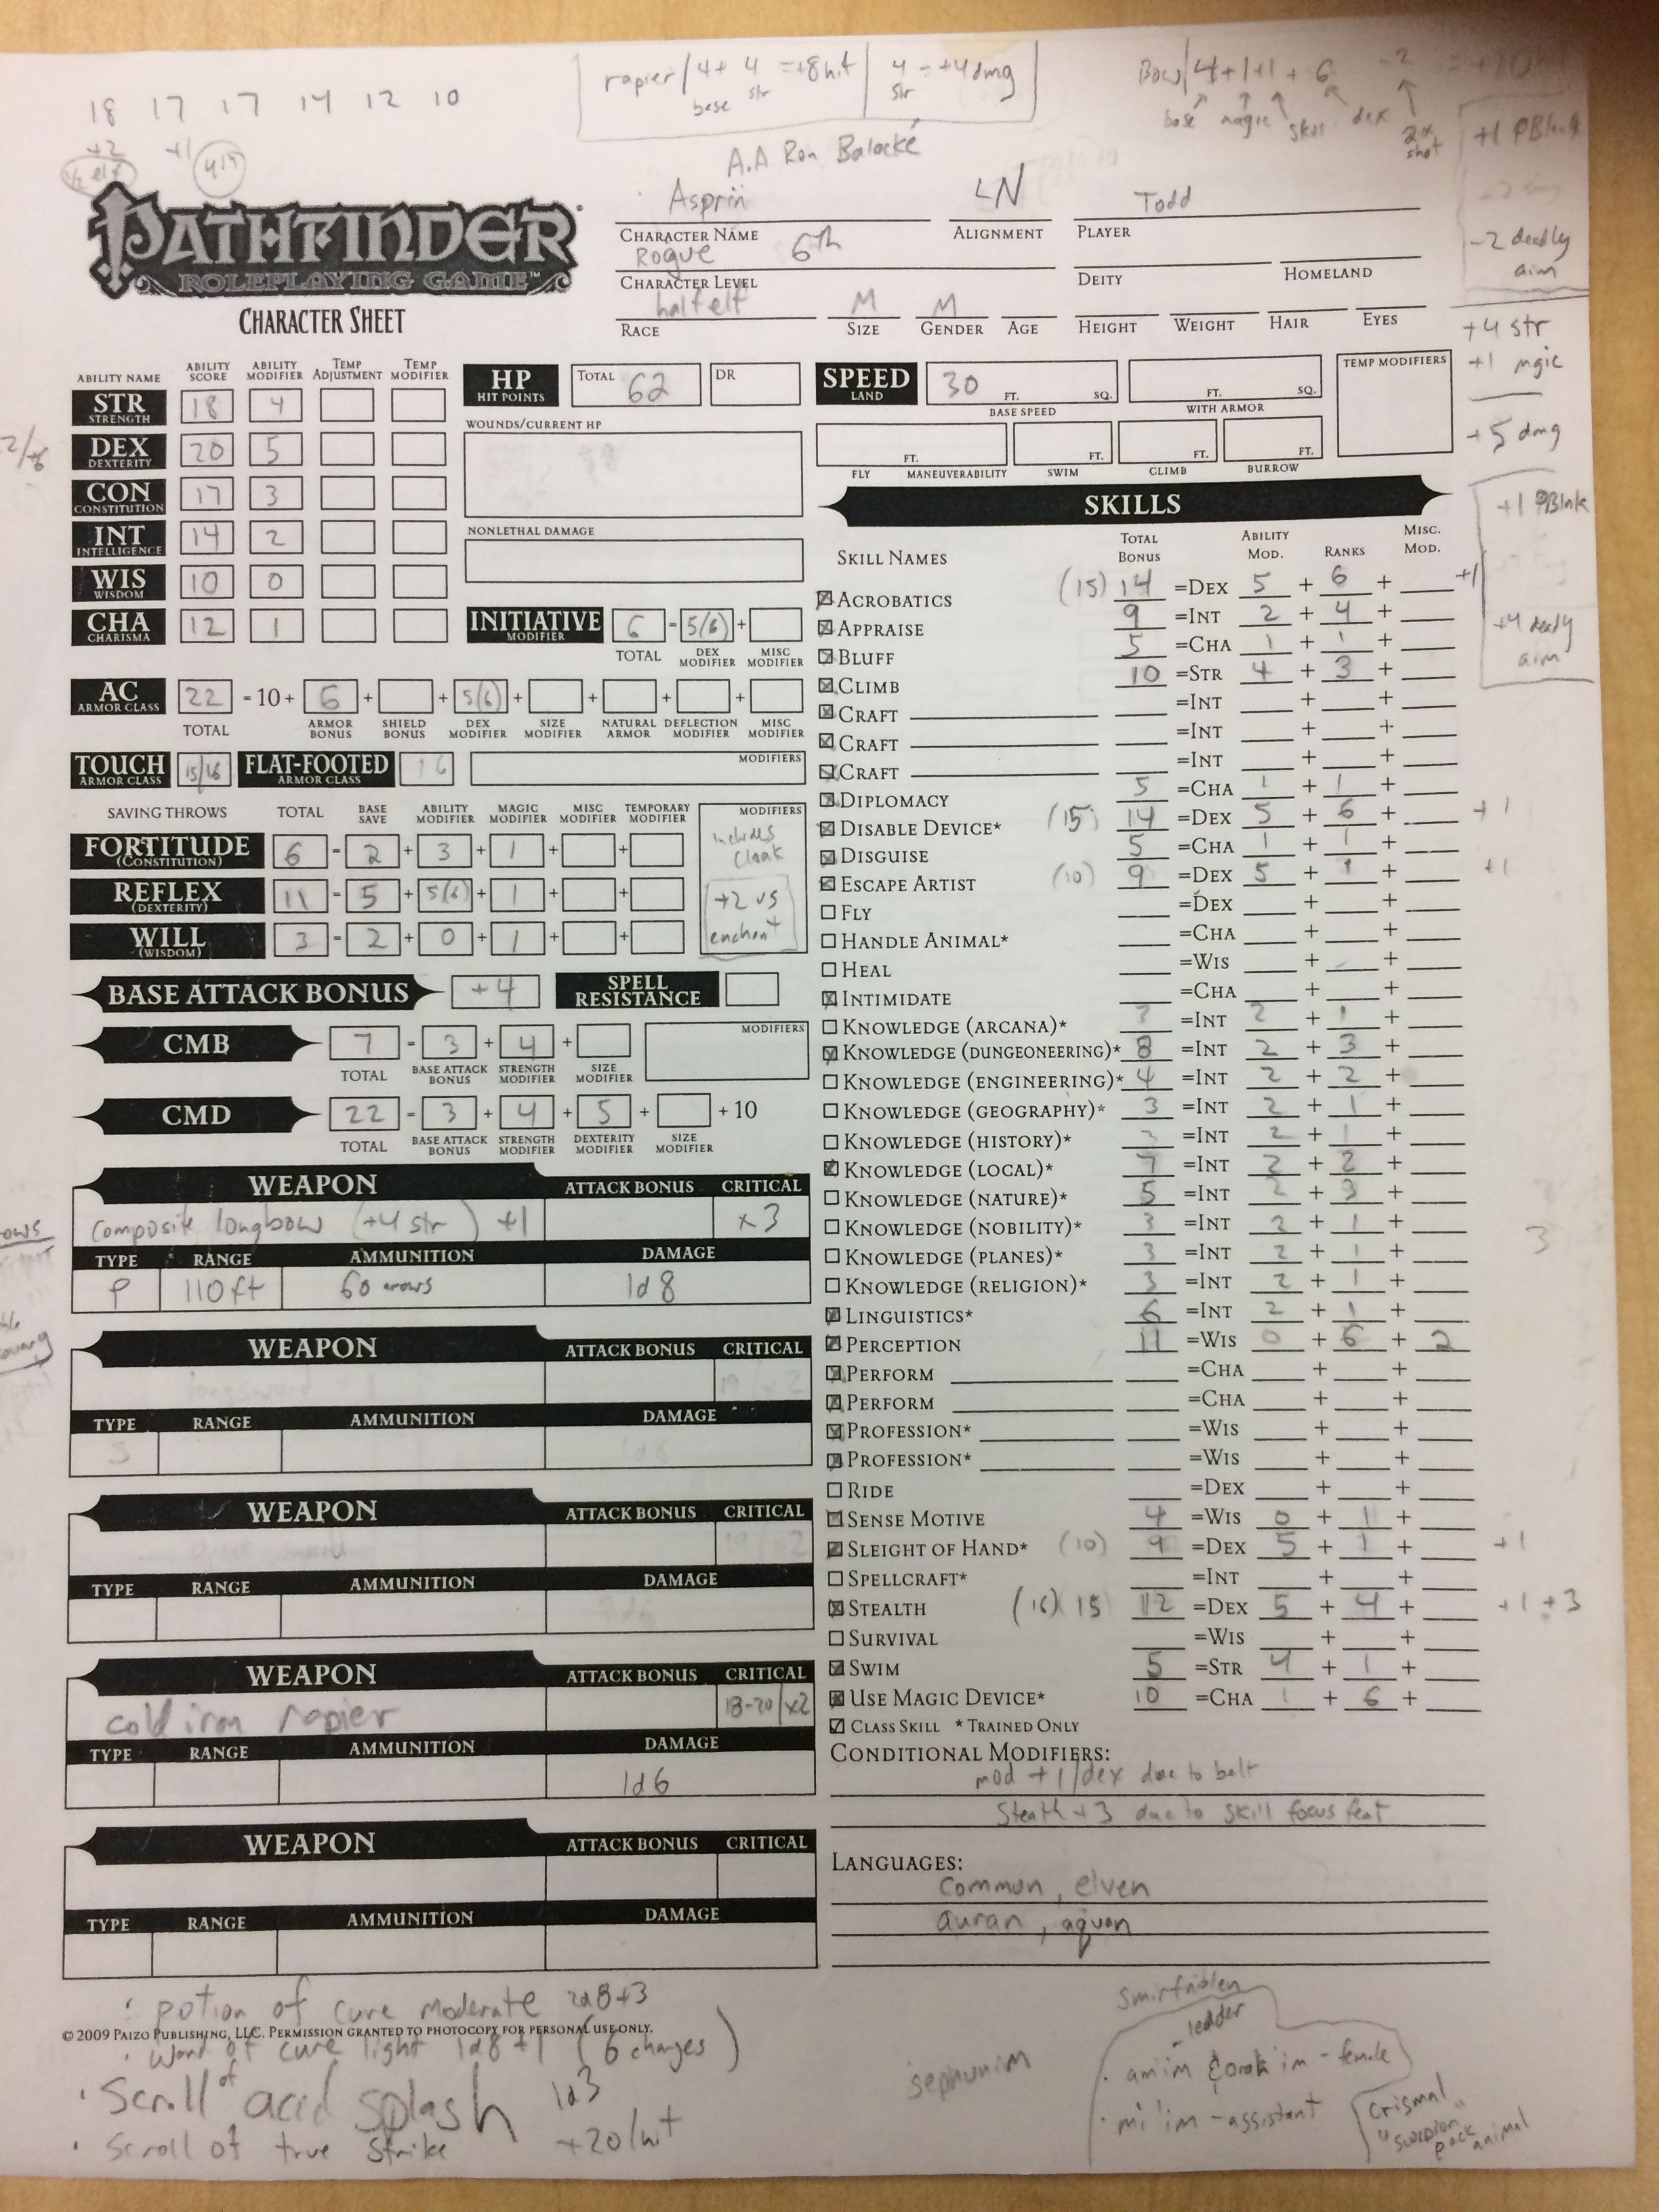 18 17 17 14 12 10
+2 +1
1/2 elf
rapier / 4 + 4 = +8 hit | 4 = +4 dmg
base str str
Bow / 4 + 1 + 1 + 6 -2
base magic dex 2x shot
+1 PBlank
-2 deadly aim
+4 str
+1 mgic
+5 dmg
+1 PBlnk
+4 deady aim
A.A Ron Balacké
PATHFINDER
ROLEPLAYING GAME™
CHARACTER SHEET
Asprin LN Todd
CHARACTER NAME ALIGNMENT PLAYER
Rogue 6th
CHARACTER LEVEL DEITY HOMELAND
half elf M M
RACE SIZE GENDER AGE HEIGHT WEIGHT HAIR EYES
ABILITY NAME ABILITY SCORE ABILITY MODIFIER TEMP ADJUSTMENT TEMP MODIFIER
STR STRENGTH 18 4
DEX DEXTERITY 20 5
CON CONSTITUTION 17 3
INT INTELLIGENCE 14 2
WIS WISDOM 10 0
CHA CHARISMA 12 1
HP HIT POINTS TOTAL 62 DR
WOUNDS/CURRENT HP
NONLETHAL DAMAGE
INITIATIVE MODIFIER 6 = 5(6) +
TOTAL DEX MODIFIER MISC MODIFIER
SPEED LAND 30 FT. SQ. FT. SQ.
BASE SPEED WITH ARMOR
TEMP MODIFIERS
FT. FT. FT. FT.
FLY MANEUVERABILITY SWIM CLIMB BURROW
AC ARMOR CLASS 22 = 10 + 6 + + 5(6) + + + +
TOTAL ARMOR BONUS SHIELD BONUS DEX MODIFIER SIZE MODIFIER NATURAL ARMOR DEFLECTION MODIFIER MISC MODIFIER
TOUCH ARMOR CLASS 15/16 FLAT-FOOTED ARMOR CLASS 16 MODIFIERS
SAVING THROWS TOTAL BASE SAVE ABILITY MODIFIER MAGIC MODIFIER MISC MODIFIER TEMPORARY MODIFIER MODIFIERS
FORTITUDE (CONSTITUTION) 6 = 2 + 3 + 1 + +
REFLEX (DEXTERITY) 11 = 5 + 5(6) + 1 + +
WILL (WISDOM) 3 = 2 + 0 + 1 + +
includs cloak
+2 vs enchant
BASE ATTACK BONUS +4 SPELL RESISTANCE
CMB 7 = 3 + 4 + MODIFIERS
TOTAL BASE ATTACK BONUS STRENGTH MODIFIER SIZE MODIFIER
CMD 22 = 3 + 4 + 5 + + 10
TOTAL BASE ATTACK BONUS STRENGTH MODIFIER DEXTERITY MODIFIER SIZE MODIFIER
WEAPON ATTACK BONUS CRITICAL
composite longbow (+4 str) +1 x3
TYPE RANGE AMMUNITION DAMAGE
P 110 ft 60 arrows 1d8
WEAPON ATTACK BONUS CRITICAL
19/x2
TYPE RANGE AMMUNITION DAMAGE
S 1d8
WEAPON ATTACK BONUS CRITICAL
19/x2
TYPE RANGE AMMUNITION DAMAGE
WEAPON ATTACK BONUS CRITICAL
cold iron rapier 18-20/x2
TYPE RANGE AMMUNITION DAMAGE
1d6
WEAPON ATTACK BONUS CRITICAL
TYPE RANGE AMMUNITION DAMAGE
SKILLS
SKILL NAMES TOTAL BONUS ABILITY MOD. RANKS MISC. MOD.
ACROBATICS (15) 14 =DEX 5 + 6 + +1
APPRAISE 9 =INT 2 + 4 +
BLUFF 5 =CHA 1 + 1 +
CLIMB 10 =STR 4 + 3 +
CRAFT =INT + +
CRAFT =INT + +
CRAFT =INT + +
DIPLOMACY 5 =CHA 1 + 1 +
DISABLE DEVICE* (15) 14 =DEX 5 + 6 + +1
DISGUISE 5 =CHA 1 + 1 +
ESCAPE ARTIST (10) 9 =DEX 5 + 1 + +1
FLY =DEX + +
HANDLE ANIMAL* =CHA + +
HEAL =WIS + +
INTIMIDATE =CHA + +
KNOWLEDGE (ARCANA)* 3 =INT 2 + 1 +
KNOWLEDGE (DUNGEONEERING)* 8 =INT 2 + 3 +
KNOWLEDGE (ENGINEERING)* 4 =INT 2 + 2 +
KNOWLEDGE (GEOGRAPHY)* 3 =INT 2 + 1 +
KNOWLEDGE (HISTORY)* 3 =INT 2 + 1 +
KNOWLEDGE (LOCAL)* 7 =INT 2 + 2 +
KNOWLEDGE (NATURE)* 5 =INT 2 + 3 +
KNOWLEDGE (NOBILITY)* 3 =INT 2 + 1 +
KNOWLEDGE (PLANES)* 3 =INT 2 + 1 +
KNOWLEDGE (RELIGION)* 3 =INT 2 + 1 +
LINGUISTICS* 6 =INT 2 + 1 +
PERCEPTION 11 =WIS 0 + 6 + 2
PERFORM =CHA + +
PERFORM =CHA + +
PROFESSION* =WIS + +
PROFESSION* =WIS + +
RIDE =DEX + +
SENSE MOTIVE 4 =WIS 0 + 1 +
SLEIGHT OF HAND* (10) 9 =DEX 5 + 1 + +1
SPELLCRAFT* =INT + +
STEALTH (16) 15 12 =DEX 5 + 4 + +1 +3
SURVIVAL =WIS + +
SWIM 5 =STR 4 + 1 +
USE MAGIC DEVICE* 10 =CHA 1 + 6 +
CLASS SKILL * TRAINED ONLY
CONDITIONAL MODIFIERS:
mod +1/dex due to belt
Stealth +3 due to skill focus feat
LANGUAGES:
common, elven
auran, aquan
· potion of cure moderate 2d8+3
© 2009 PAIZO PUBLISHING, LLC. PERMISSION GRANTED TO PHOTOCOPY FOR PERSONAL USE ONLY.
· wand of cure light 1d8+1 (6 charges)
· Scroll of acid splash 1d3
· Scroll of true strike +20/hit
smirfniblen
- leader
· mi'im - assistant
- female
crismal
"scorpion" pack animal